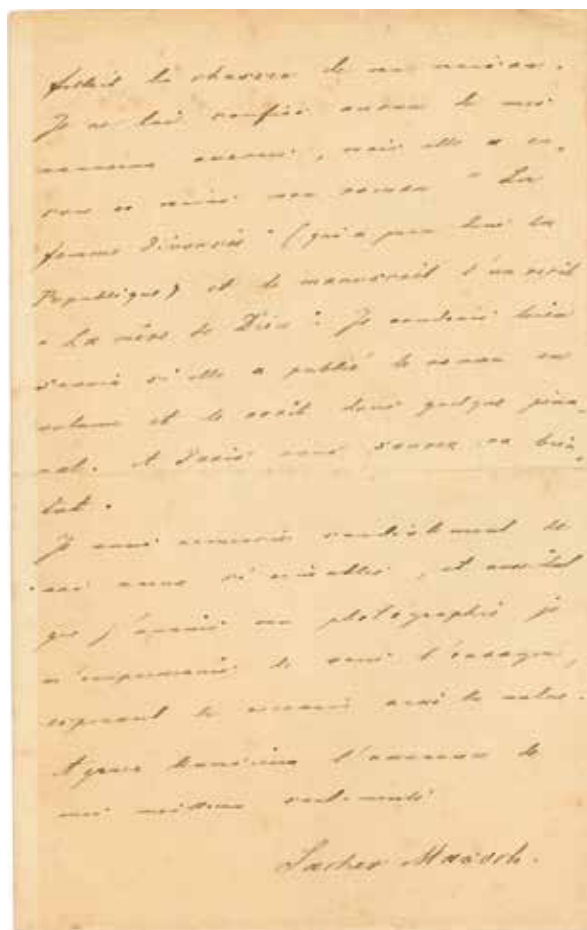 de
Je ne lui confie aucun de mes
, mais elle a en-
mon roman "La
femme divorcée" (qui a paru dans la
République) et le manuscrit d'un récit
"La mère de Dieu". Je voudrais bien
si elle a publié le roman en
volume et le récit dans quelque jour-
nal. A Paris vous
tôt.
Je vous remercie cordialement de
, et aussitôt
que j'aurai ma photographie je
m'empresserai de vous l'envoyer,
espérant de recevoir aussi la votre.
Agréez Monsieur l'assurance de
mes meilleurs sentiments
Sacher Masoch.